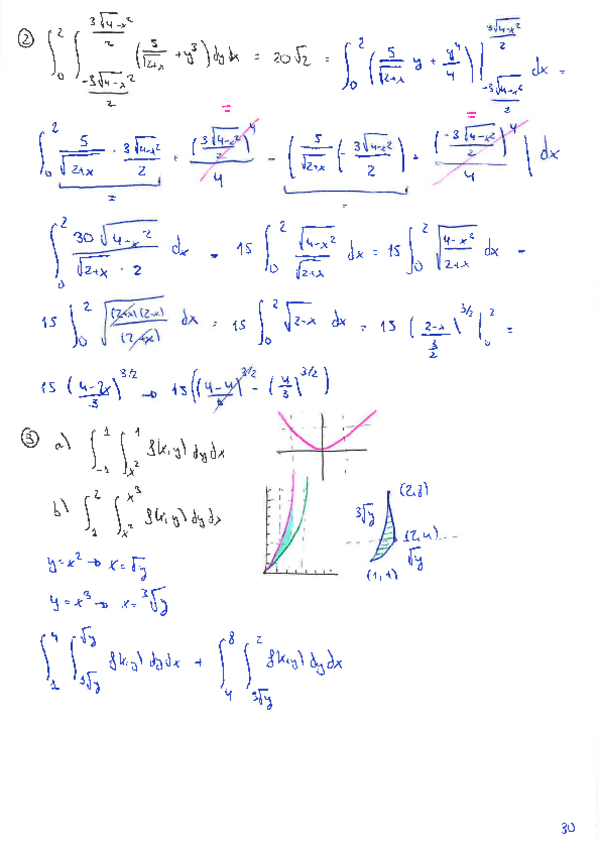 ② ∫₀² ∫_{-3√(4-x²)/2}^{3√(4-x²)/2} (5/√(2+x) + y³) dy dx = 20√2 = ∫₀² (5/√(2+x) y + y⁴/4) |_{-3√(4-x²)/2}^{3√(4-x²)/2} dx =
∫₀² 5/√(2+x) · 3√(4-x²)/2 + (3√(4-x²)/2)⁴/4 - (5/√(2+x) (-3√(4-x²)/2) + (-3√(4-x²)/2)⁴/4 | dx
∫₀² 30√(4-x²)/(√(2+x) · 2) dx = 15 ∫₀² √(4-x²)/√(2+x) dx = 15 ∫₀² √((4-x²)/(2+x)) dx =
15 ∫₀² √((2+x)(2-x)/(2+x)) dx = 15 ∫₀² √(2-x) dx = 15 ((2-x)/(3/2))^{3/2} |₀² =
15 ((4-2x)/3)^{3/2} → 15 (((4-4)/3)^{3/2} - (4/3)^{3/2})
③ a) ∫₋₁¹ ∫_{x²}^{1} f(x,y) dy dx
b) ∫₁² ∫_{x²}^{x³} f(x,y) dy dx
y = x² → x = √y
y = x³ → x = ³√y
∫₁⁴ ∫_{³√y}^{√y} f(x,y) dy dx + ∫₄⁸ ∫_{³√y}^{2} f(x,y) dy dx
³√y
(2,4)
√y
(1,1)
30